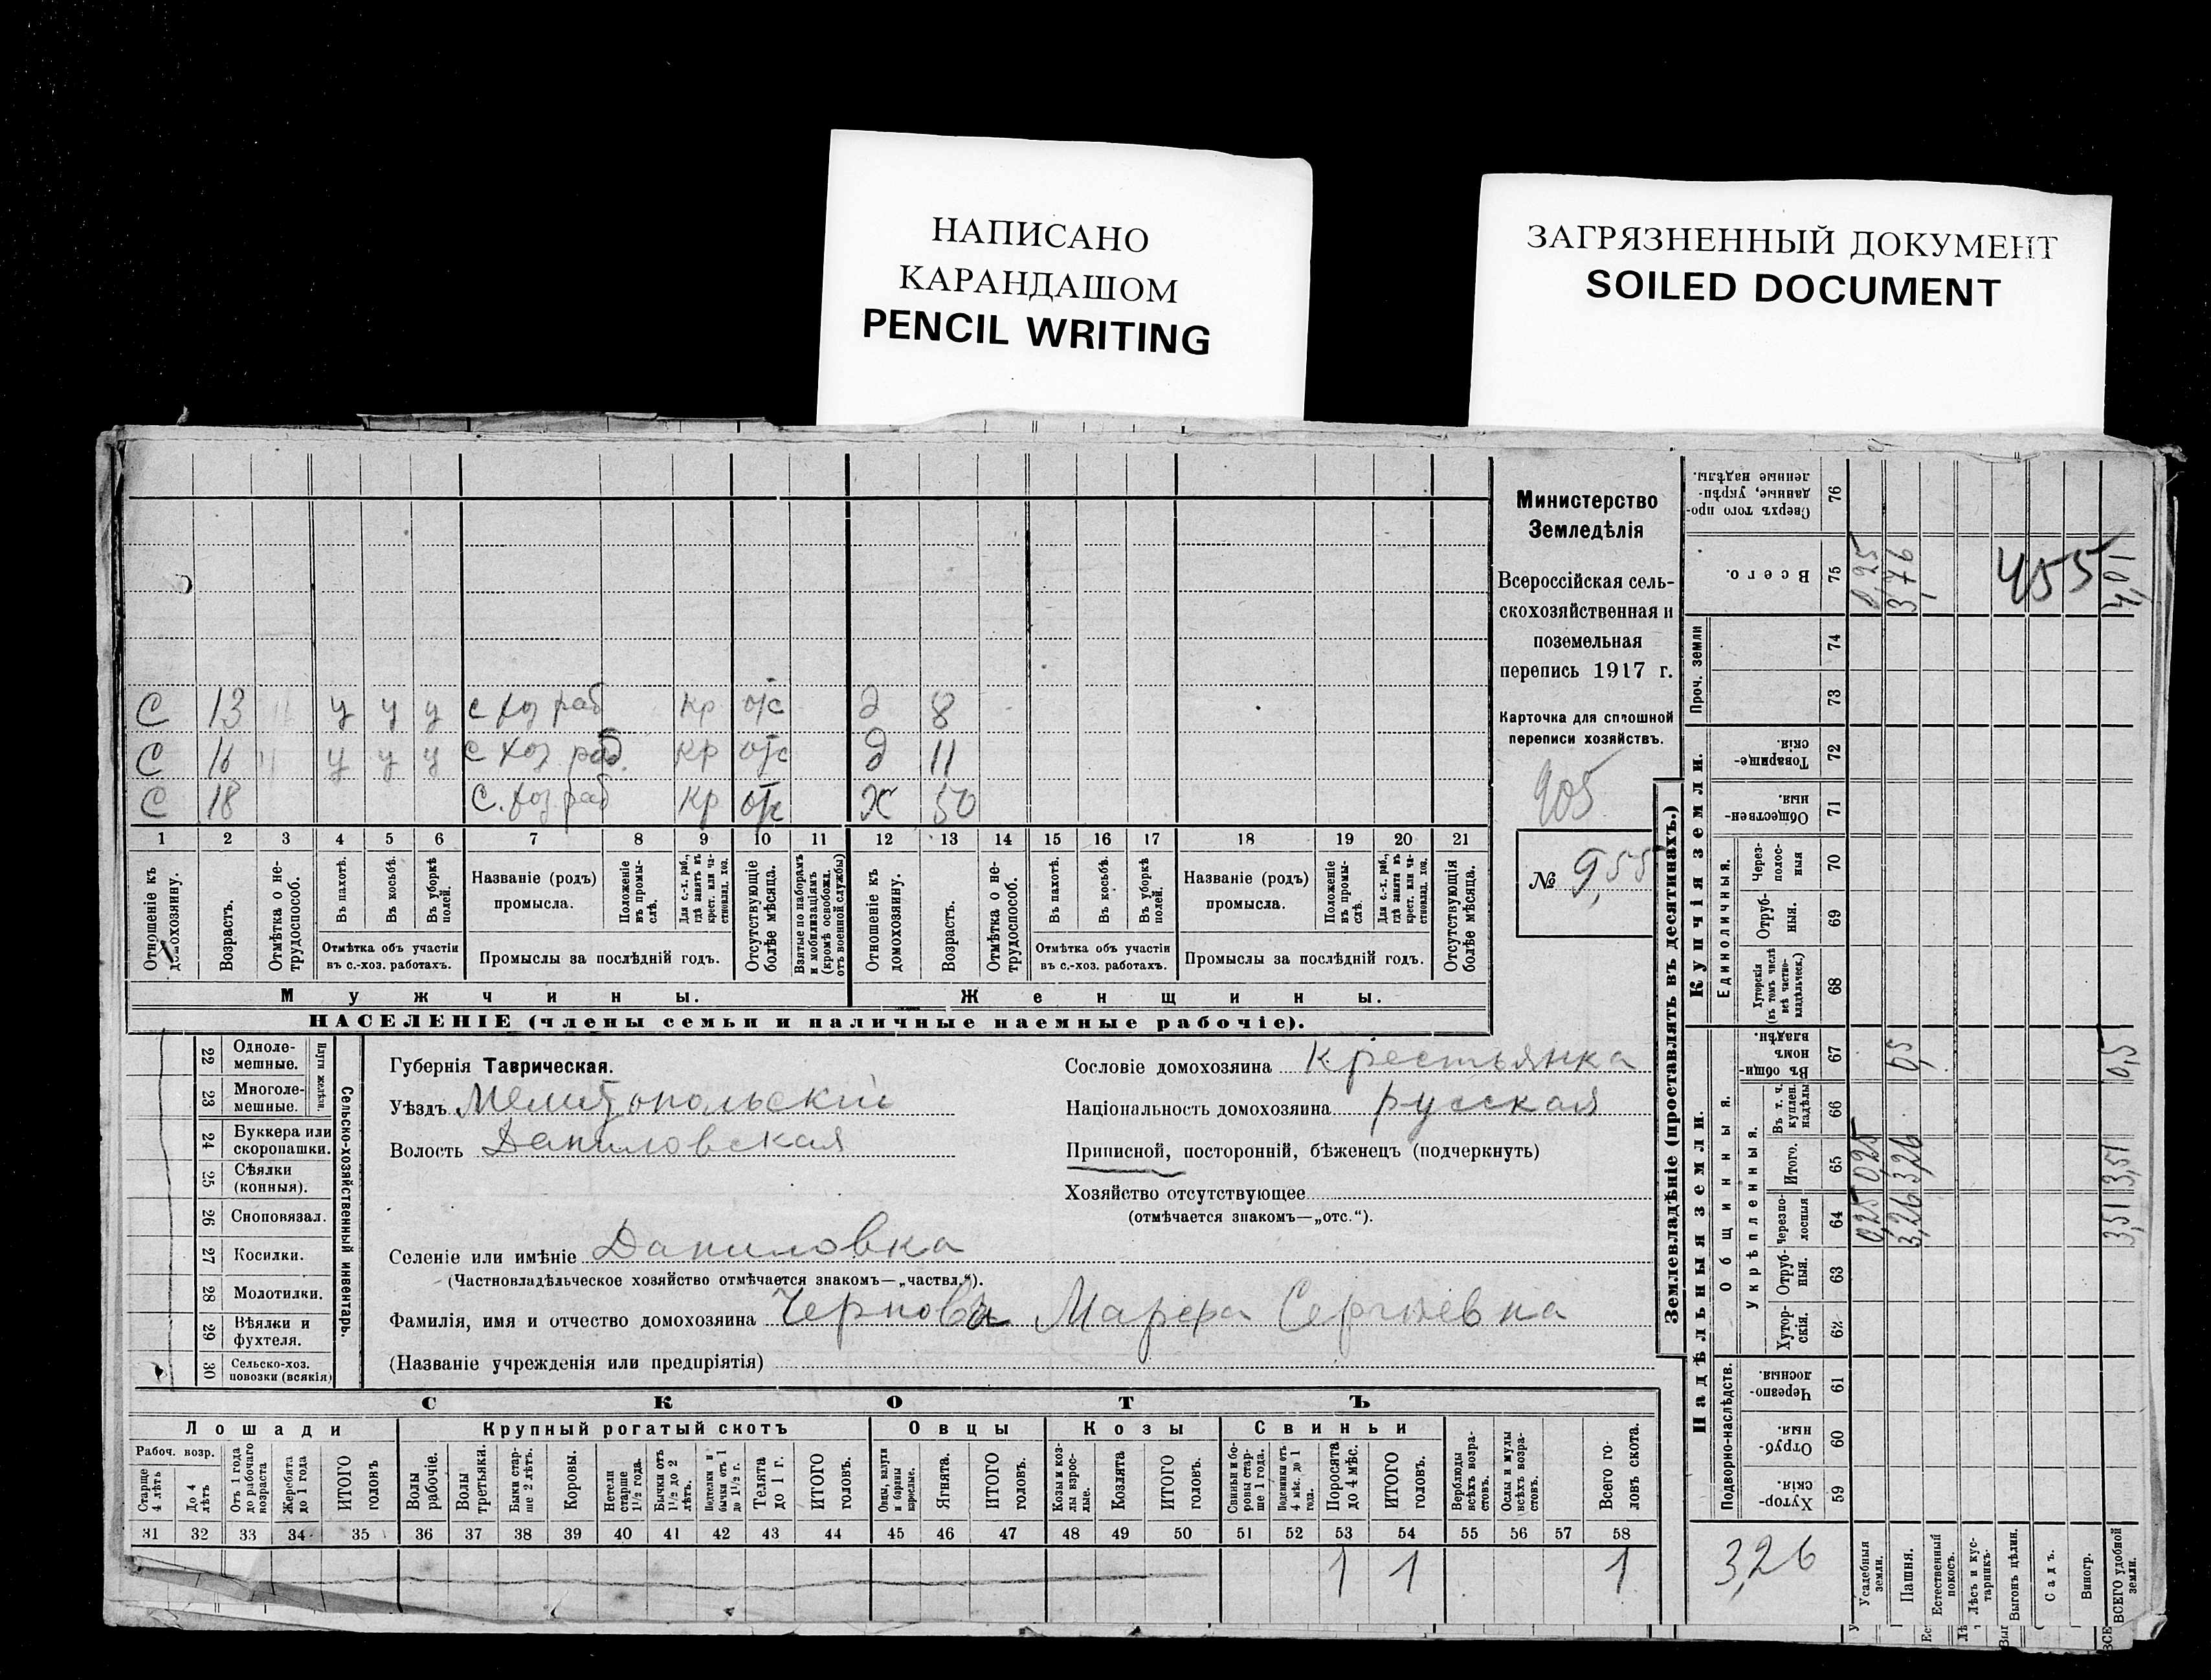 НАПИСАНО
КАРАНДАШОМ
PENCIL WRITING
ЗАГРЯЗНЕННЫЙ ДОКУМЕНТ
SOILED DOCUMENT
С 13 у у у с хоз раб кр отс д 8
С 16 у у у с хоз раб. кр отс д 11
С 18 с. хоз раб кр отс х 50
1 2 3 4 5 6 7 8 9 10 11 12 13 14 15 16 17 18 19 20 21
Отношеніе къ домохозяину.
Возрастъ.
Отмѣтка о нетрудоспособ.
Въ пахотѣ.
Въ косьбѣ.
Въ уборкѣ полей.
Отмѣтка объ участіи
въ с.-хоз. работахъ.
Названіе (родъ)
промысла.
Положеніе въ промыслѣ.
Для с.-х. раб., гдѣ занятъ въ крест. или частновлад. хоз.
Промыслы за послѣдній годъ.
Отсутствующіе болѣе мѣсяца.
Взятые по наборамъ и мобилизаціямъ (кромѣ освобожд. отъ военной службы)
Отношеніе къ домохозяину.
Возрастъ.
Отмѣтка о нетрудоспособ.
Въ пахотѣ.
Въ косьбѣ.
Въ уборкѣ полей.
Отмѣтка объ участіи
въ с.-хоз. работахъ.
Названіе (родъ)
промысла.
Положеніе въ промыслѣ.
Для с.-х. раб., гдѣ занята въ крест. или частновлад. хоз.
Промыслы за послѣдній годъ.
Отсутствующія болѣе мѣсяца.
Мужчины.
Женщины.
НАСЕЛЕНІЕ (члены семьи и наличные наемные рабочіе).
Министерство
Земледѣлія
Всероссійская сель-
скохозяйственная и
поземельная
перепись 1917 г.
Карточка для сплошной
переписи хозяйствъ.
905
№ 9,55
22 Однолемешные.
23 Многолемешные.
Плуги желѣзн.
24 Буккера или скоропашки.
25 Сѣялки (конныя).
26 Сноповязал.
27 Косилки.
28 Молотилки.
29 Вѣялки и фухтеля.
30 Сельско-хоз. повозки (всякія)
Сельско-хозяйственный инвентарь.
Губернія Таврическая.
Уѣздъ Мелитопольскій
Волость Даниловская
Селеніе или имѣніе Даниловка
(Частновладѣльческое хозяйство отмѣчается знакомъ—„частвл.“).
Фамилія, имя и отчество домохозяина Чернова Марфа Сергѣевна
(Названіе учрежденія или предпріятія)
Сословіе домохозяина Крестьянка
Національность домохозяина русская
Приписной, посторонній, бѣженецъ (подчеркнуть)
Хозяйство отсутствующее
(отмѣчается знакомъ—„отс.“).
СКОТЪ
Лошади
Крупный рогатый скотъ
Овцы
Козы
Свиньи
Рабоч. возр.
Старше 4 лѣтъ
До 4 лѣтъ
Отъ 1 года до рабочаго возраста
Жеребята до 1 года
ИТОГО головъ
Волы рабочіе.
Волы третьяки.
Быки старше 2 лѣтъ.
Коровы.
Нетели старше 1½ года.
Бычки отъ 1½ до 2 лѣтъ.
Подтелки и бычки отъ 1 до 1½ г.
Телята до 1 г.
ИТОГО головъ.
Овцы, валухи и бараны взрослые.
Ягнята.
ИТОГО головъ.
Козы и козлы взрослые.
Козлята
ИТОГО головъ.
Свиньи и боровы старше 1 года.
Подсвинки отъ 4 мѣс. до 1 года.
Поросята до 4 мѣс.
ИТОГО головъ.
Верблюды всѣхъ возрастовъ.
Ослы и мулы всѣхъ возрастовъ.
Всего головъ скота.
31 32 33 34 35 36 37 38 39 40 41 42 43 44 45 46 47 48 49 50 51 52 53 54 55 56 57 58
1 1 1
Землевладѣніе (проставлять въ десятинахъ.)
Надѣльныя земли.
Купчія земли.
Проч. земли
Подворно-наслѣдств.
Общинныя.
Укрѣпленныя.
Единоличныя.
Хуторскія. 59
Отрубныя 60
Черезполосныя. 61
Хуторскія. 62
Отрубныя. 63
Черезполосныя 64
Итого. 65
Въ т. ч. куплен. надѣлы 66
Въ общинномъ владѣн. 67
Хуторскія (въ томъ числѣ всѣ частновладѣльческ.) 68
Отрубныя. 69
Черезполосныя 70
Общественныя. 71
Товарищескія. 72
73
74
Всего. 75
Сверхъ того проданные, укрѣпленные надѣлы. 76
Усадебныя земли. 0,25 0,25 0,25
Пашня. 3,26 3,26 0,5 3,76
Естественный покосъ.
Лѣсъ и кустарникъ.
Выгонъ цѣлин.
Садъ.
Виногр.
ВСЕГО удобной земли. 3,51 3,51 0,5 4,01
455
3,26